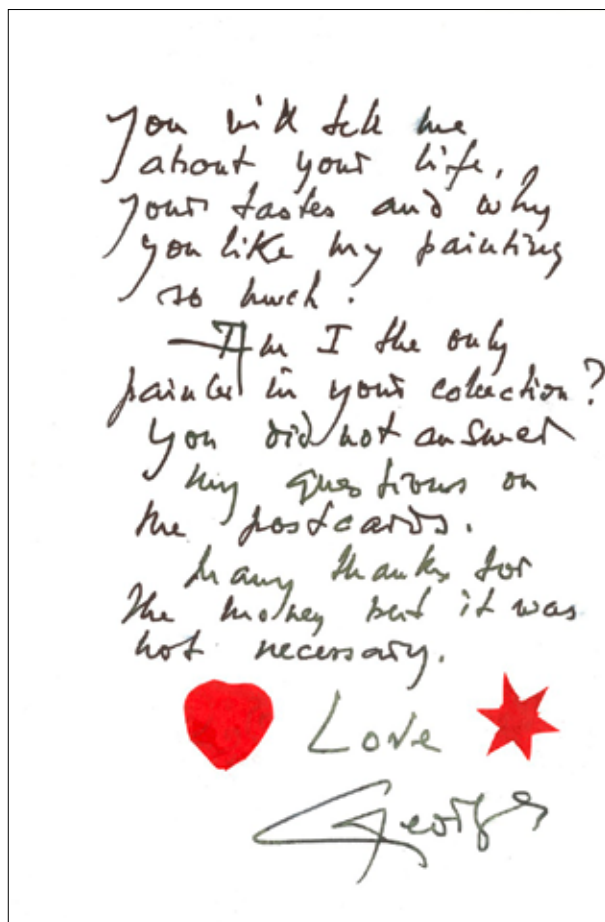 you will tell me
about your life,
your tastes and why
you like my painting
so much.
— Am I the only
painter in your colection?
you did not answer
my questions on
the postcards.
many thanks for
the money but it was
not necessary.
Love
Georges